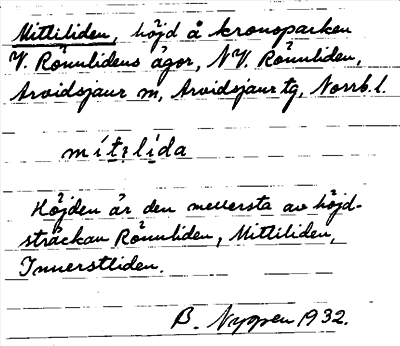 Mittiliden, höjd å kronoparken
V. Rönnlidens ägor, NV. Rönnliden,
Arvidsjaur sn, Arvidsjaur tg, Norrb. l.
Höjden är den mellersta av höjd-
sträckan Rönnliden, Mittiliden,
Innerstliden.
B. Nyppen 1932.